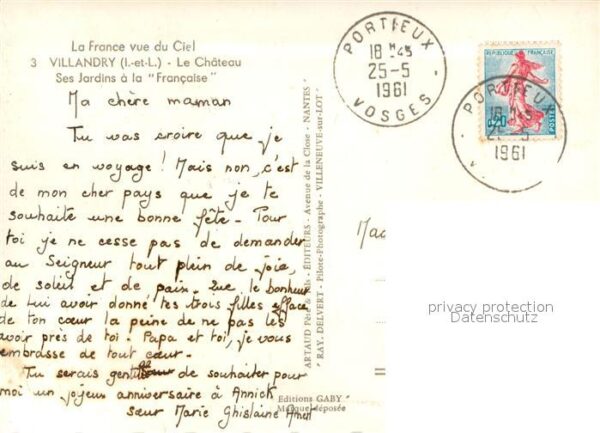 La France vue du Ciel
3 VILLANDRY (I.-et-L.) - Le Château
Ses Jardins à la "Française"
Ma chère maman
Tu vas croire que je
suis en voyage ! Mais non, c'est
de mon cher pays que je te
souhaite une bonne fête - Pour
toi je ne cesse pas de demander
au Seigneur tout plein de joie,
de soleil et de paix. Que le bonheur
de Lui avoir donné tes trois filles efface
de ton cœur la peine de ne pas les
avoir près de toi. Papa et toi, je vous
embrasse de tout cœur.
Tu serais gentille de souhaiter pour
moi un joyeux anniversaire à Annick
sœur Marie Ghislaine
ARTAUD Père & Fils - ÉDITEURS - Avenue de la Close - NANTES
"RAY. DELVERT - Pilote-Photographe - VILLENEUVE-sur-LOT"
Editions GABY
Marque déposée
PORTIEUX
18 H 45
25-5
1961
VOSGES
REPUBLIQUE FRANÇAISE
0,20
POSTES
PORTIEUX
18 H 45
25-5
1961
privacy protection
Datenschutz